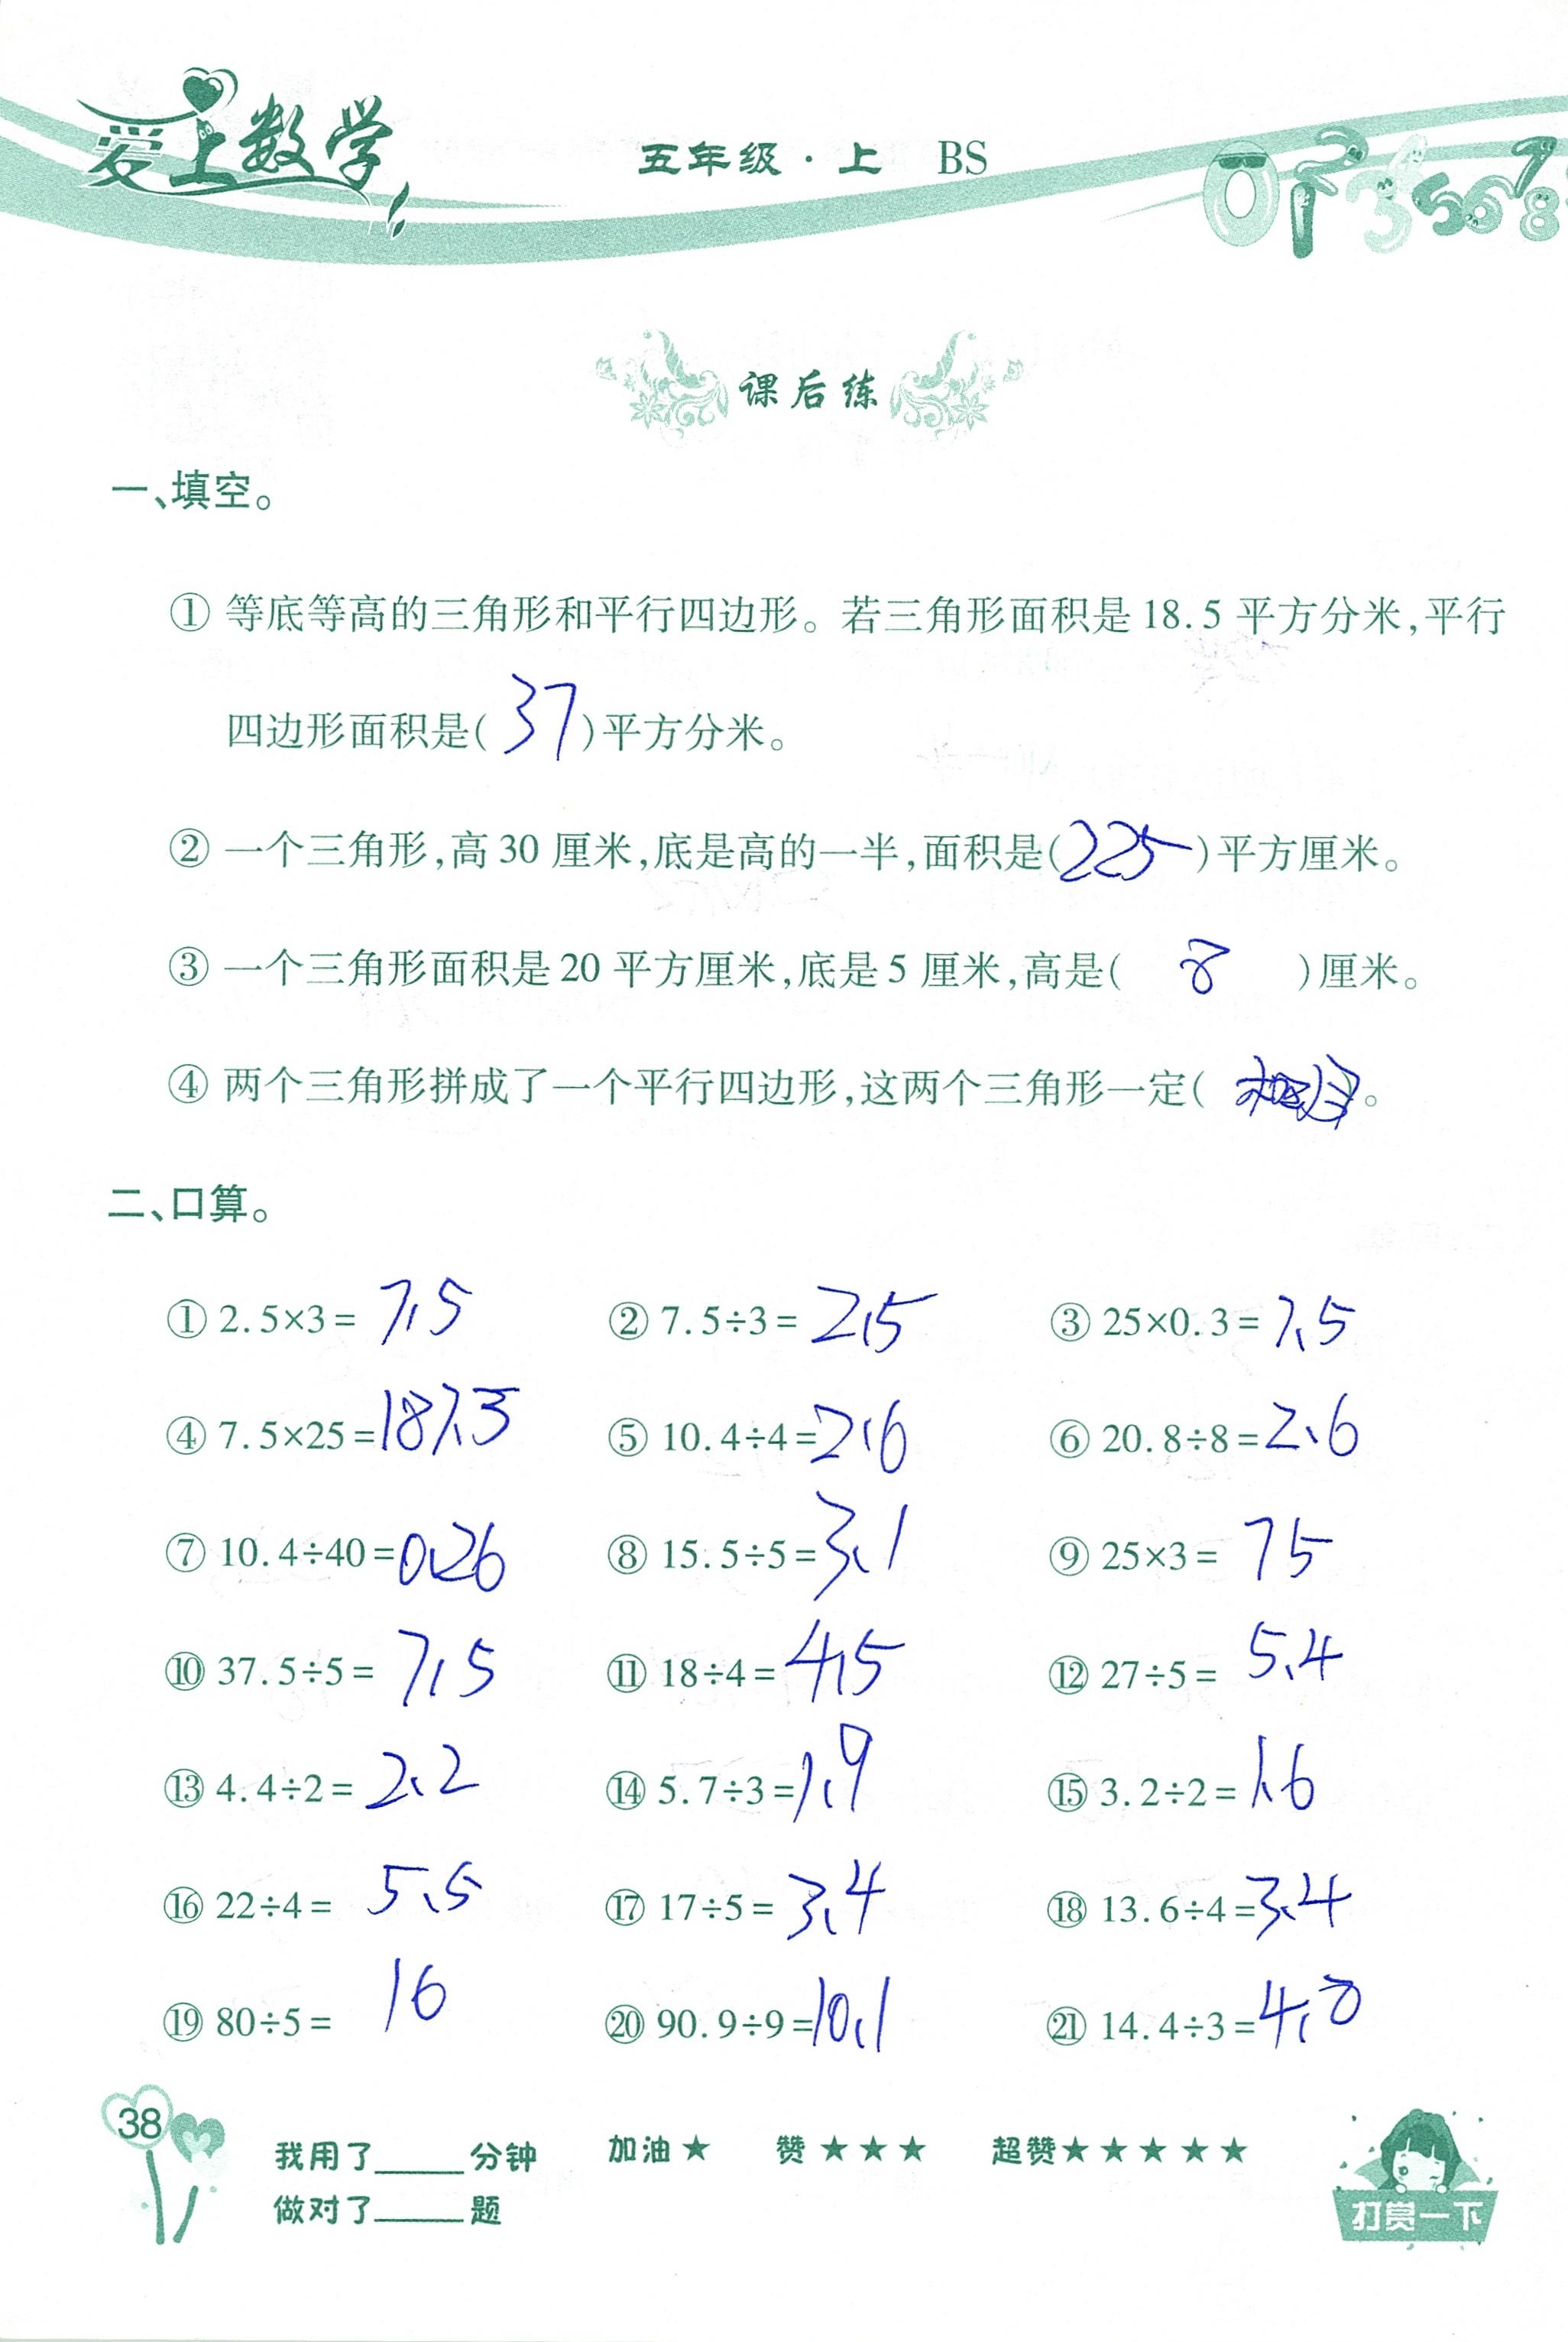 爱上数学 五年级·上 BS
课后练
一、填空。
① 等底等高的三角形和平行四边形。若三角形面积是 18.5 平方分米,平行
四边形面积是( 37 )平方分米。
② 一个三角形,高 30 厘米,底是高的一半,面积是( 225 )平方厘米。
③ 一个三角形面积是 20 平方厘米,底是 5 厘米,高是( 8 )厘米。
④ 两个三角形拼成了一个平行四边形,这两个三角形一定( 。
二、口算。
① 2.5×3= 7.5 ② 7.5÷3= 2.5 ③ 25×0.3= 7.5
④ 7.5×25= ⑤ 10.4÷4= 2.6 ⑥ 20.8÷8= 2.6
⑦ 10.4÷40= 0.26 ⑧ 15.5÷5= 3.1 ⑨ 25×3= 75
⑩ 37.5÷5= 7.5 ⑪ 18÷4= 4.5 ⑫ 27÷5= 5.4
⑬ 4.4÷2= 2.2 ⑭ 5.7÷3= 1.9 ⑮ 3.2÷2= 1.6
⑯ 22÷4= 5.5 ⑰ 17÷5= 3.4 ⑱ 13.6÷4= 3.4
⑲ 80÷5= 16 ⑳ 90.9÷9= 10.1 ㉑ 14.4÷3= 4.8
38
我用了____分钟 加油★ 赞★★★ 超赞★★★★★
做对了____题
打赏一下